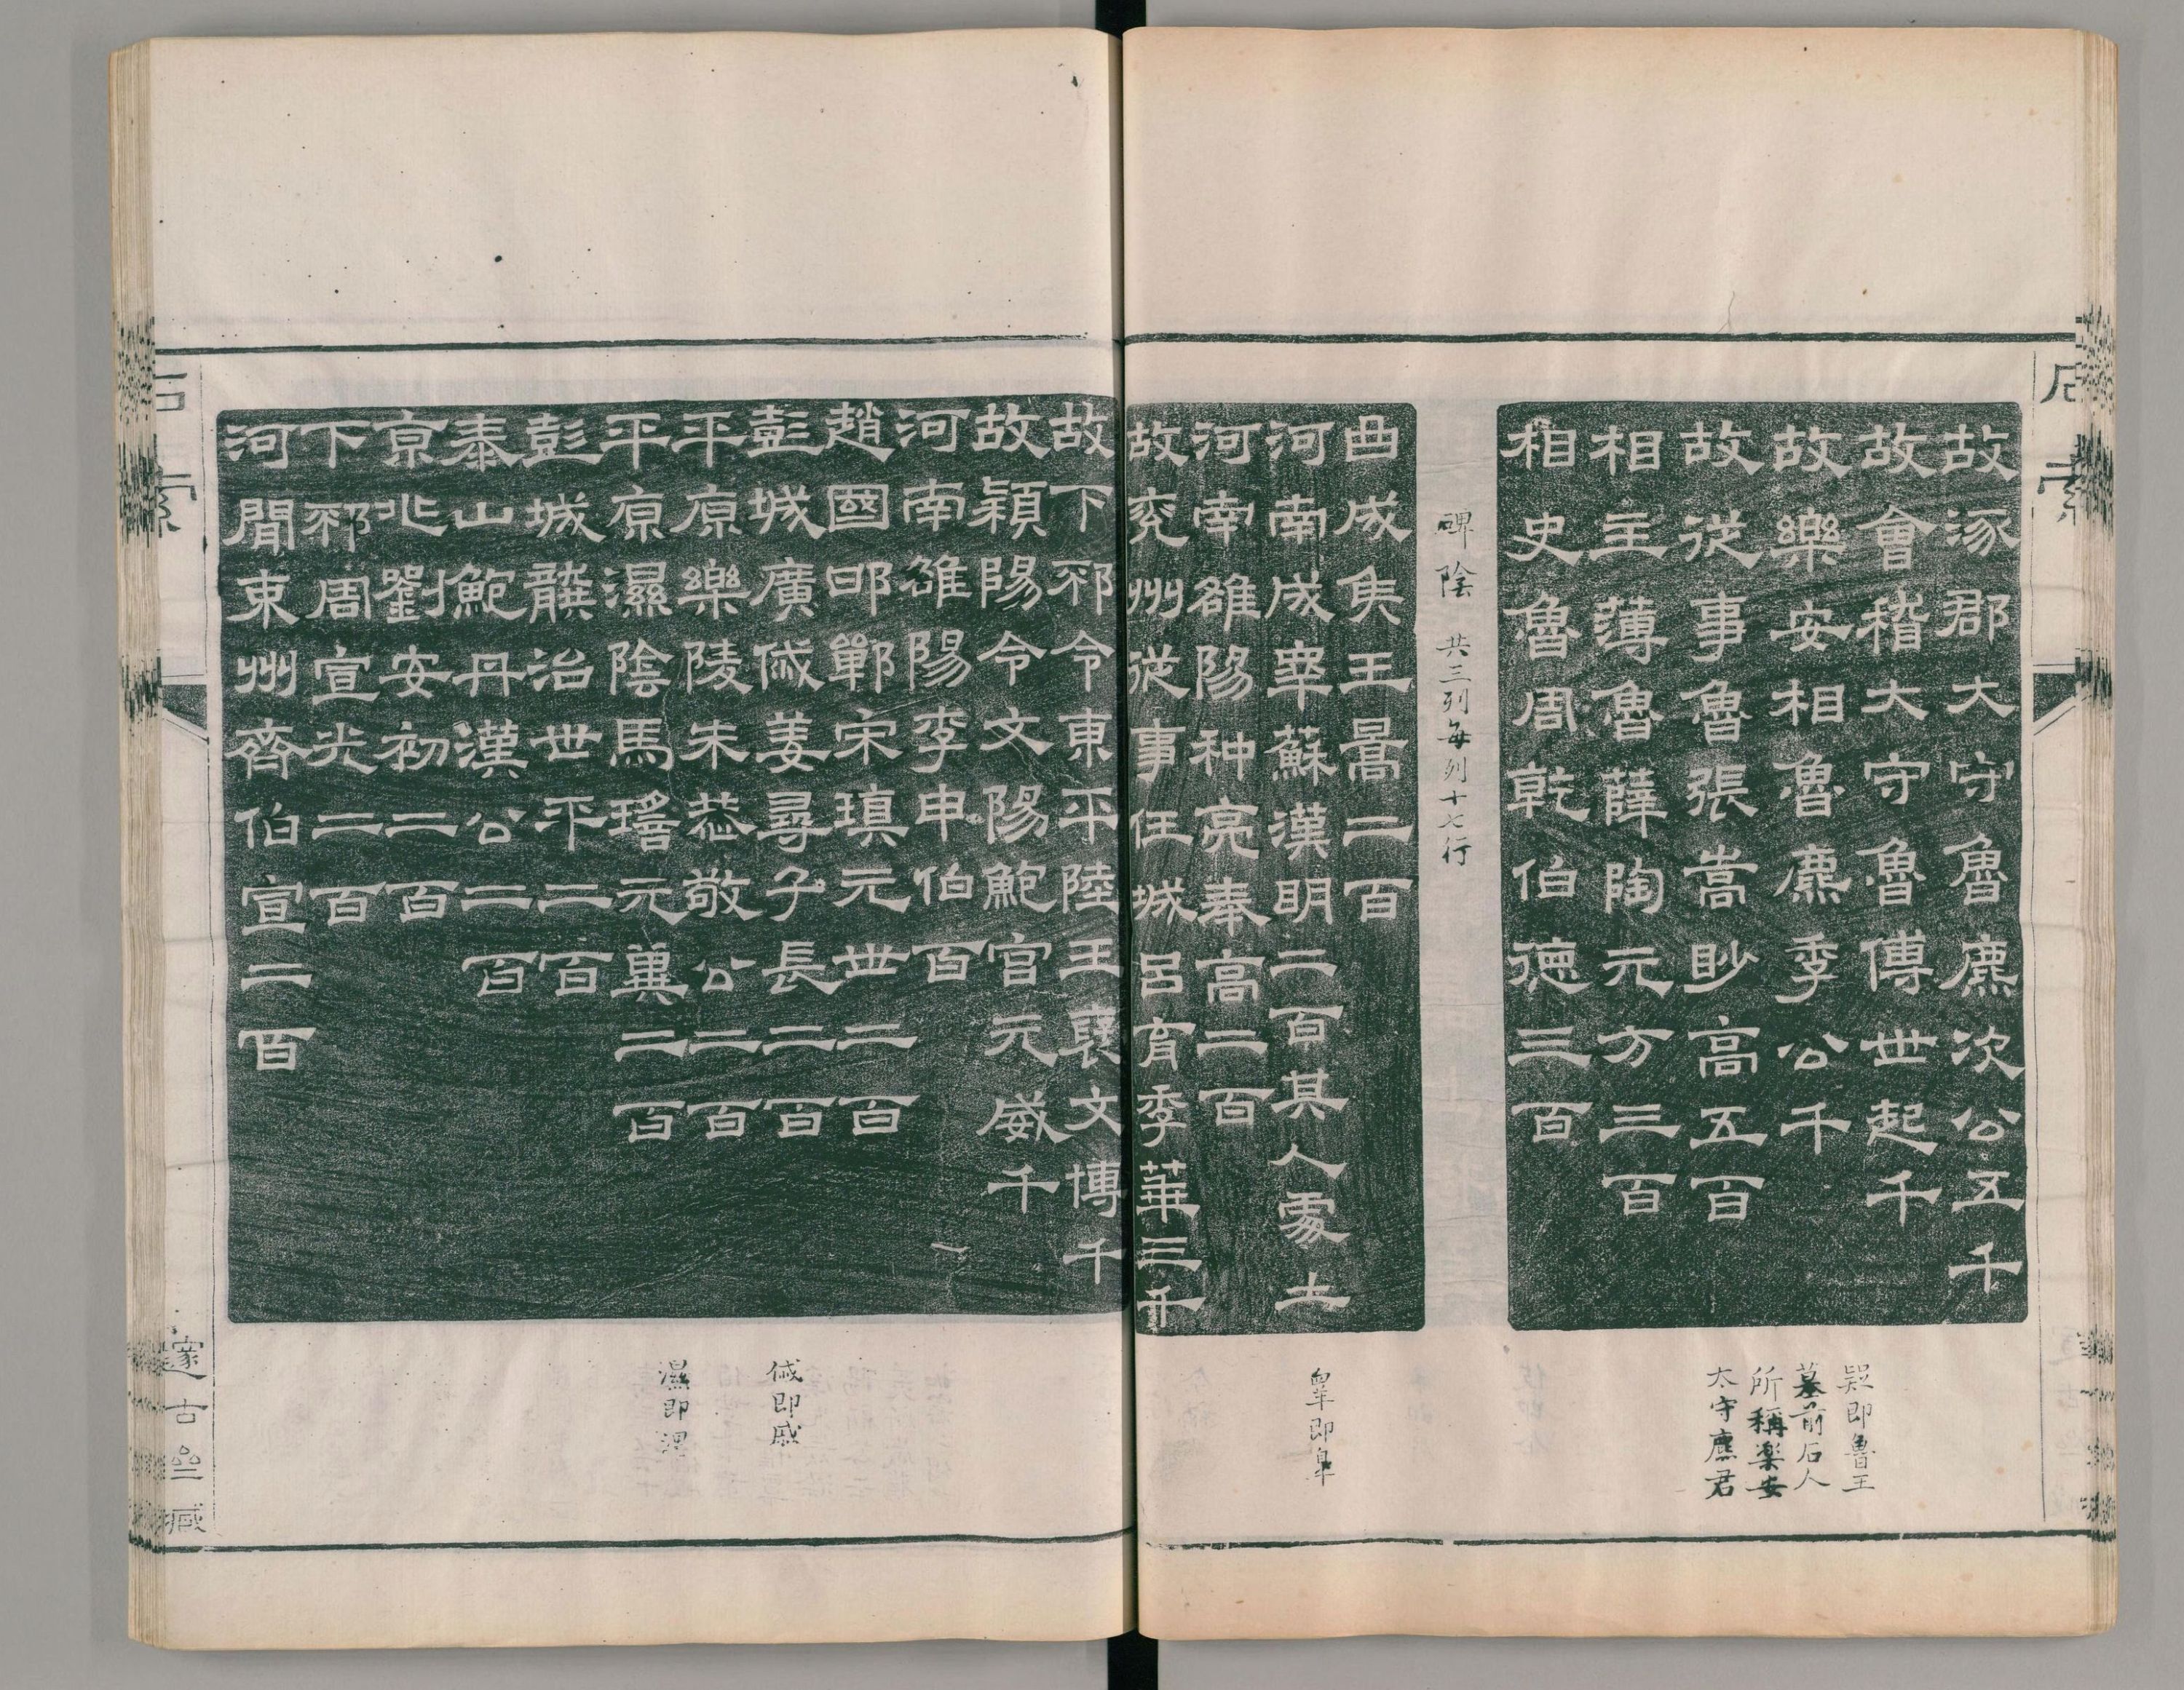 石索
故涿郡大守魯麃次公五千
故會稽大守魯傅世起千
故樂安相魯麃季公千
故從事魯張嵩眇高五百
相主薄魯薛陶元方三百
相史魯周乾伯德三百
疑即魯王
墓前石人
所稱樂安
太守麃君
碑陰 共三列每列十七行
曲成侯王暠二百
河南成睾蘇漢明二百其人處士
河南雒陽种亮奉高二百
故兗州從事任城呂育季華三千
睾即皐
故下邳令東平陸王褒文博千
故潁陽令文陽鮑宮元威千
河南雒陽李申伯百
趙國邯鄲宋瑱元世二百
彭城廣戚姜尋子長二百
平原樂陵朱恭敬公二百
平原濕陰馬瑤元冀二百
彭城龔治世平二百
泰山鮑丹漢公二百
京兆劉安初二百
下邳周宣光二百
河間束州齊伯宣二百
傶即戚
濕即漯
石索
邃古𠫤臧